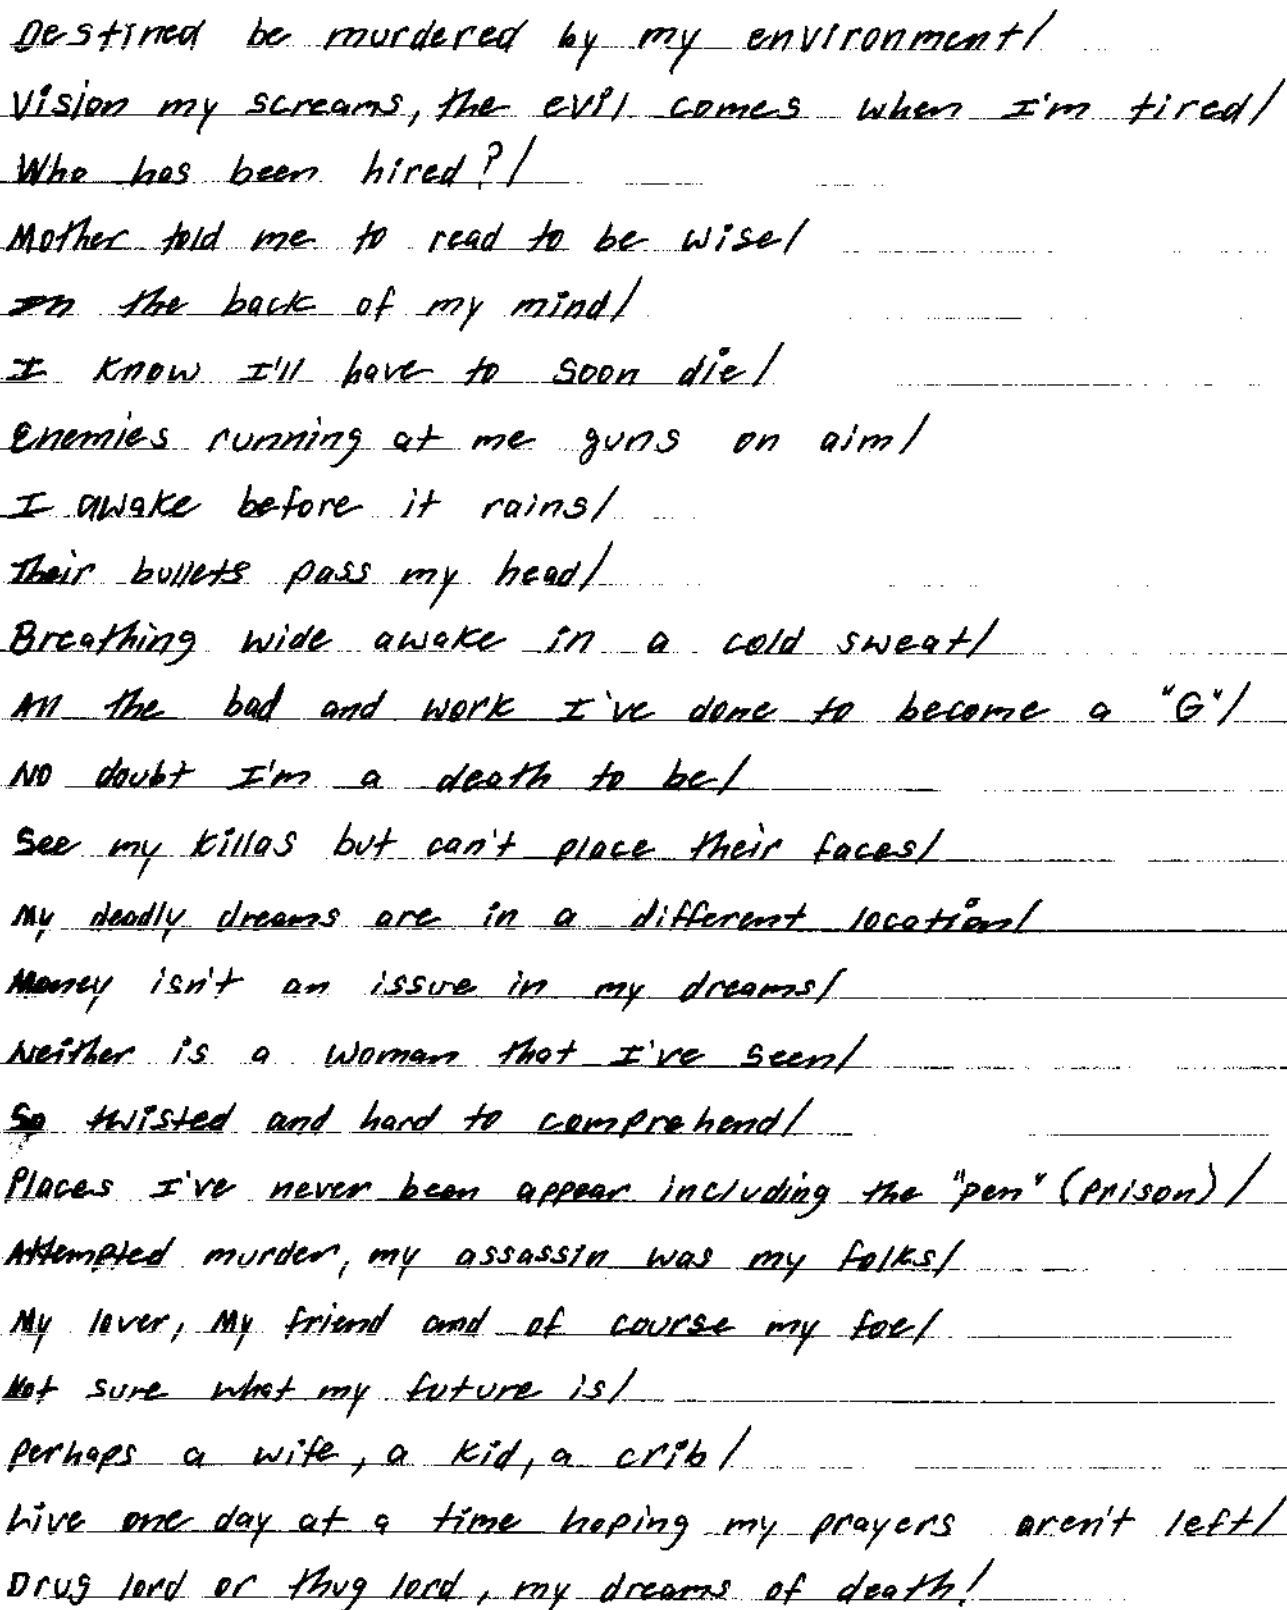 Destined be murdered by my environment/
Vision my screams, the evil comes when I'm tired/
Who has been hired?/
Mother told me to read to be wise/
In the back of my mind/
I know I'll have to soon die/
Enemies running at me guns on aim/
I awake before it rains/
Their bullets pass my head/
Breathing wide awake in a cold sweat/
All the bad and work I've done to become a "G"/
No doubt I'm a death to be/
See my killas but can't place their faces/
My deadly dreams are in a different location/
Money isn't an issue in my dreams/
Neither is a woman that I've seen/
So twisted and hard to comprehend/
Places I've never been appear including the "pen" (prison)/
Attempted murder, my assassin was my folks/
My lover, My friend and of course my foe/
Not sure what my future is/
Perhaps a wife, a kid, a crib/
Live one day at a time hoping my prayers aren't left/
Drug lord or thug lord, my dreams of death!